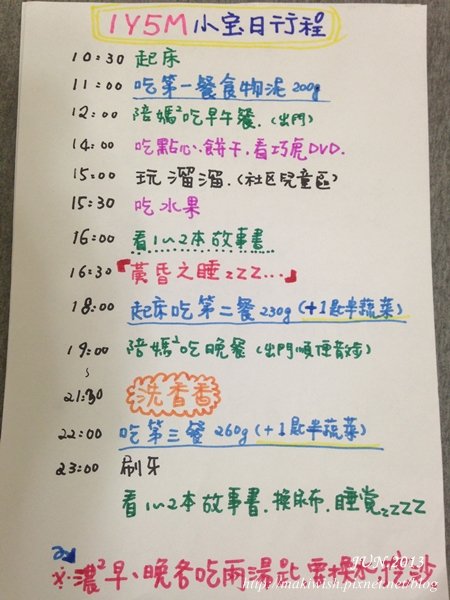 1Y5M小宝日行程
10:30 起床
11:00 吃第一餐食物泥200g
12:00 陪媽²吃早午餐.(出門)
14:00 吃點心.餅干.看巧虎DVD.
15:00 玩溜溜.(社区兒童區)
15:30 吃水果
16:00 看1~2本故事書
16:30 「黃昏之睡zzZ...」
18:00 起床吃第二餐230g(+1匙半蔬菜)
19:00 陪媽²吃晚餐(出門順便散步)
~
21:30 洗香香
22:00 吃第三餐260g(+1匙半蔬菜)
23:00 刷牙
看1~2本故事書.換尿布.睡覚zZZZ
JUN 2013
※:濃²早、晚各吃兩湯匙棗
http://makiwish.pixnet.net/blog